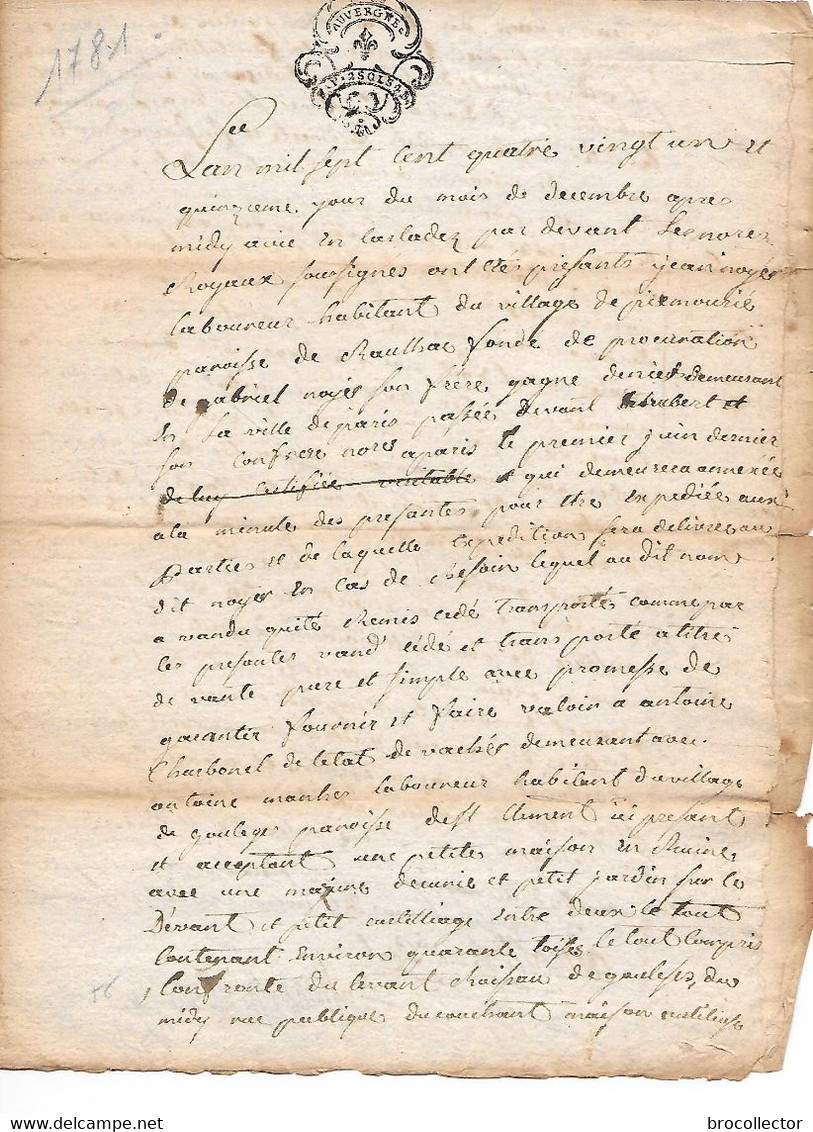 1781.
AUVERGNE
2 SOLS
Lan mil sept Cent quatre vingt un et
quinzieme jour du mois de decembre apres
midy a vic En Carladez par devant Les nores
Royaux soussignés ont ete presants jean noyés
laboureur habitant du village de
paroisse de Raulhac fondé de procuration
de gabriel noyés son frere gagne denier demeurant
En La ville de paris passée devant et
son Confrere nores a paris le premier juin dernier
de luy Certifiée veritable et qui demeurera annexée
a la minute des presantes pour etre Expediée aux
Parties et de laquelle Expedition sera delivrée au
dit noyés En Cas de Besoin lequel au dit nom
a vandu quité Remis cedé transporté comme par
les presantes vand cédé et transporté a titre
de vante pure et simple avec promesse de
garantir fournir et faire valoir a antoine
Charbonel de letat de vachés demeurant avec
antoine manhes laboureur habitant du village
de goulesge paroisse de st Clement ici presant
et acceptant une petite maison En Ruine,
avec une et petit jardin sur le
Dévant et petit Entre deux le tout
Contenant Environ quarante toises, le tout Compris
Confronte du levant Ruisseau de goulesge, du
midy rue publique du couchant maison
brocollector